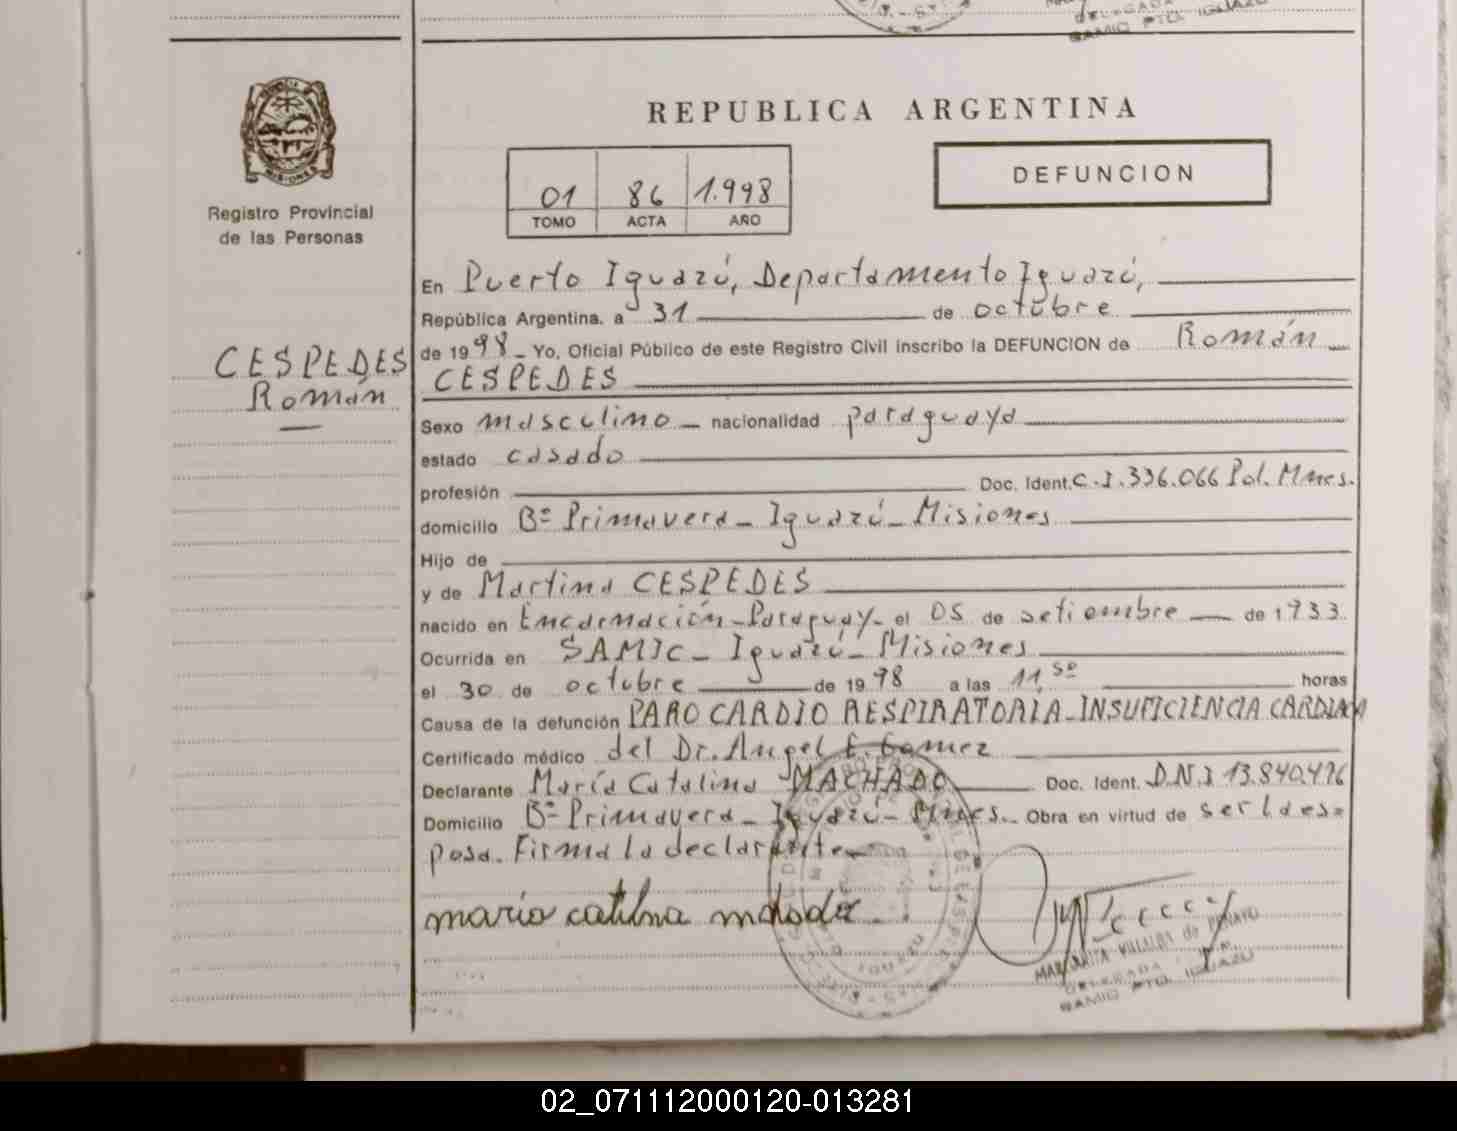 DELEGADA
SAMIC PTO. IGUAZU
PROVINCIA DE
MISIONES
Registro Provincial
de las Personas
CESPEDES
Román
REPUBLICA ARGENTINA
DEFUNCION
01 86 1.998
TOMO ACTA AÑO
En Puerto Iguazú, Departamento Iguazú,
República Argentina. a 31 de octubre
de 1998 - Yo, Oficial Público de este Registro Civil inscribo la DEFUNCION de Román
CESPEDES
Sexo masculino - nacionalidad paraguaya
estado casado
profesión Doc. Ident. C.I. 336.066 Pol. Mnes.
domicilio Bº Primavera - Iguazú - Misiones
Hijo de
y de Martina CESPEDES
nacido en Encarnación - Paraguay - el 05 de setiembre de 1933.
Ocurrida en SAMIC - Iguazú - Misiones
el 30 de octubre de 1998 a las 11,50 horas
Causa de la defunción PARO CARDIO RESPIRATORIA - INSUFICIENCIA CARDIACA
Certificado médico del Dr. Angel E. Gomez
Declarante María Catalina MACHADO Doc. Ident. D.N.I 13.840.496
Domicilio Bº Primavera - Iguazú - Mnes. - Obra en virtud de ser la es=
posa. Firma la declarante -
maria catilna mchado
MARGARITA VILLALBA de PENAYO
DELEGADA
SAMIC PTO. IGUAZU
02_071112000120-013281